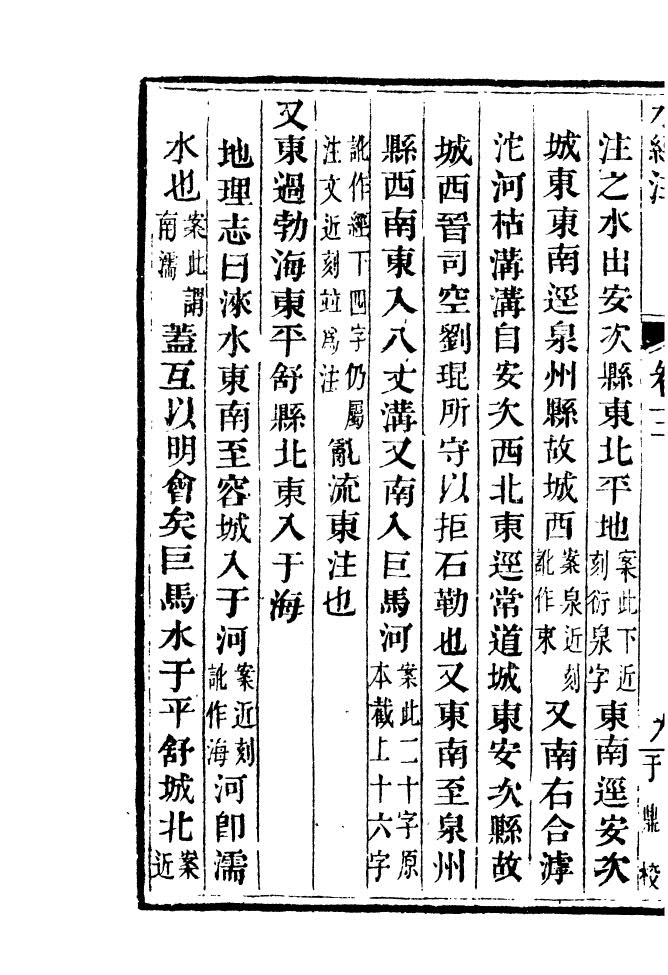 水經注 卷十二 九 于鼎校
注之水出安次縣東北平地案此下近刻衍泉字東南逕安次
城東東南逕泉州縣故城西案泉近刻訛作東又南右合滹
沱河枯溝溝自安次西北東逕常道城東安次縣故
城西晉司空劉琨所守以拒石勒也又東南至泉州
縣西南東入八丈溝又南入巨馬河案此二十字原本截上十六字
訛作經下四字仍屬注文近刻竝爲注亂流東注也
又東過勃海東平舒縣北東入于海
地理志曰淶水東南至容城入于河案近刻訛作海河卽濡
水也案此謂南濡蓋互以明會矣巨馬水于平舒城北案近